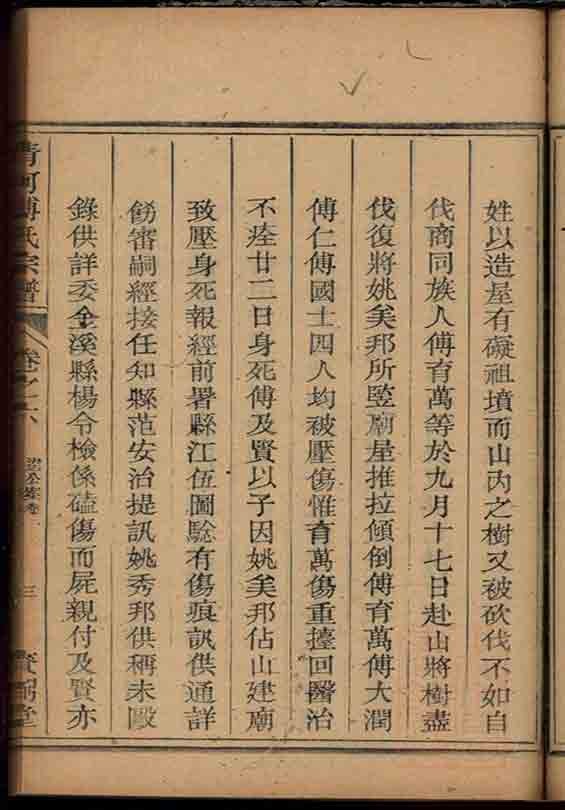 姓以造屋有礙祖墳而山內之樹又被砍伐不如自
伐商同族人傅育萬等於九月十七日赴山將樹盡
伐復將姚矣邦所竪廟屋推拉傾倒傅育萬傅大潤
傅仁傅國士四人均被壓傷惟育萬傷重擡回醫治
不痊廿二日身死傅及賢以子因姚矣邦佔山建廟
致壓身死報經前署縣江伍圖騐有傷痕訊供通詳
飭審嗣經接任知縣范安治提訊姚秀邦供稱未毆
錄供詳委金溪縣楊令檢係磕傷而屍親付及賢亦
清河傅氏宗譜
卷之六
三